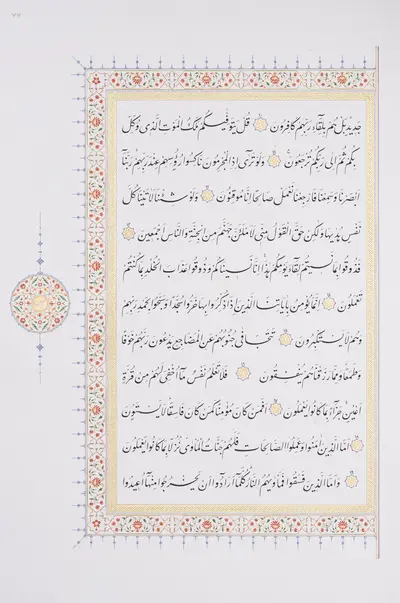 جديد بل هم بلقاء ربهم كافرون قل يتوفيكم ملك الموت الذي وكل
بكم ثم الى ربكم ترجعون ولو ترى اذ المجرمون ناكسوا رؤسهم عند ربهم ربنا
ابصرنا وسمعنا فارجعنا نعمل صالحا انا موقنون ولو شئنا لاتينا كل
نفس هديها ولكن حق القول مني لاملئن جهنم من الجنة والناس اجمعين
فذوقوا بما نسيتم لقاء يومكم هذا انا نسيناكم وذوقوا عذاب الخلد بما كنتم
تعملون انما يؤمن باياتنا الذين اذا ذكروا بها خروا سجدا وسبحوا بحمد ربهم
وهم لا يستكبرون تتجافى جنوبهم عن المضاجع يدعون ربهم خوفا
وطمعا ومما رزقناهم ينفقون فلا تعلم نفس ما اخفي لهم من قرة
اعين جزاء بما كانوا يعملون افمن كان مؤمنا كمن كان فاسقا لا يستون
اما الذين امنوا وعملوا الصالحات فلهم جنات الماوى نزلا بما كانوا يعملون
واما الذين فسقوا فماويهم النار كلما ارادوا ان يخرجوا منها اعيدوا